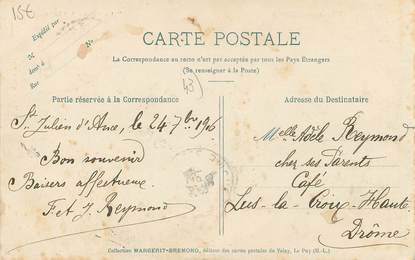 15€
Expédié par
M
demt à
Rue
N°
CARTE POSTALE
La Correspondance au recto n'est pas acceptée par tous les Pays Étrangers
(Se renseigner à la Poste)
43)
Partie réservée à la Correspondance
Adresse du Destinataire
St Julien d'Ance, le 24 7bre 1906
Bon souvenir
Baisers affectueux
F. et J. Reymond
Melle Adèle Reymond
chez ses Parents
Café
Lus-la-Croix-Haute
Drôme
Collection MARGERIT-BREMOND, éditeur des cartes postales du Velay, Le Puy (H.-L.)